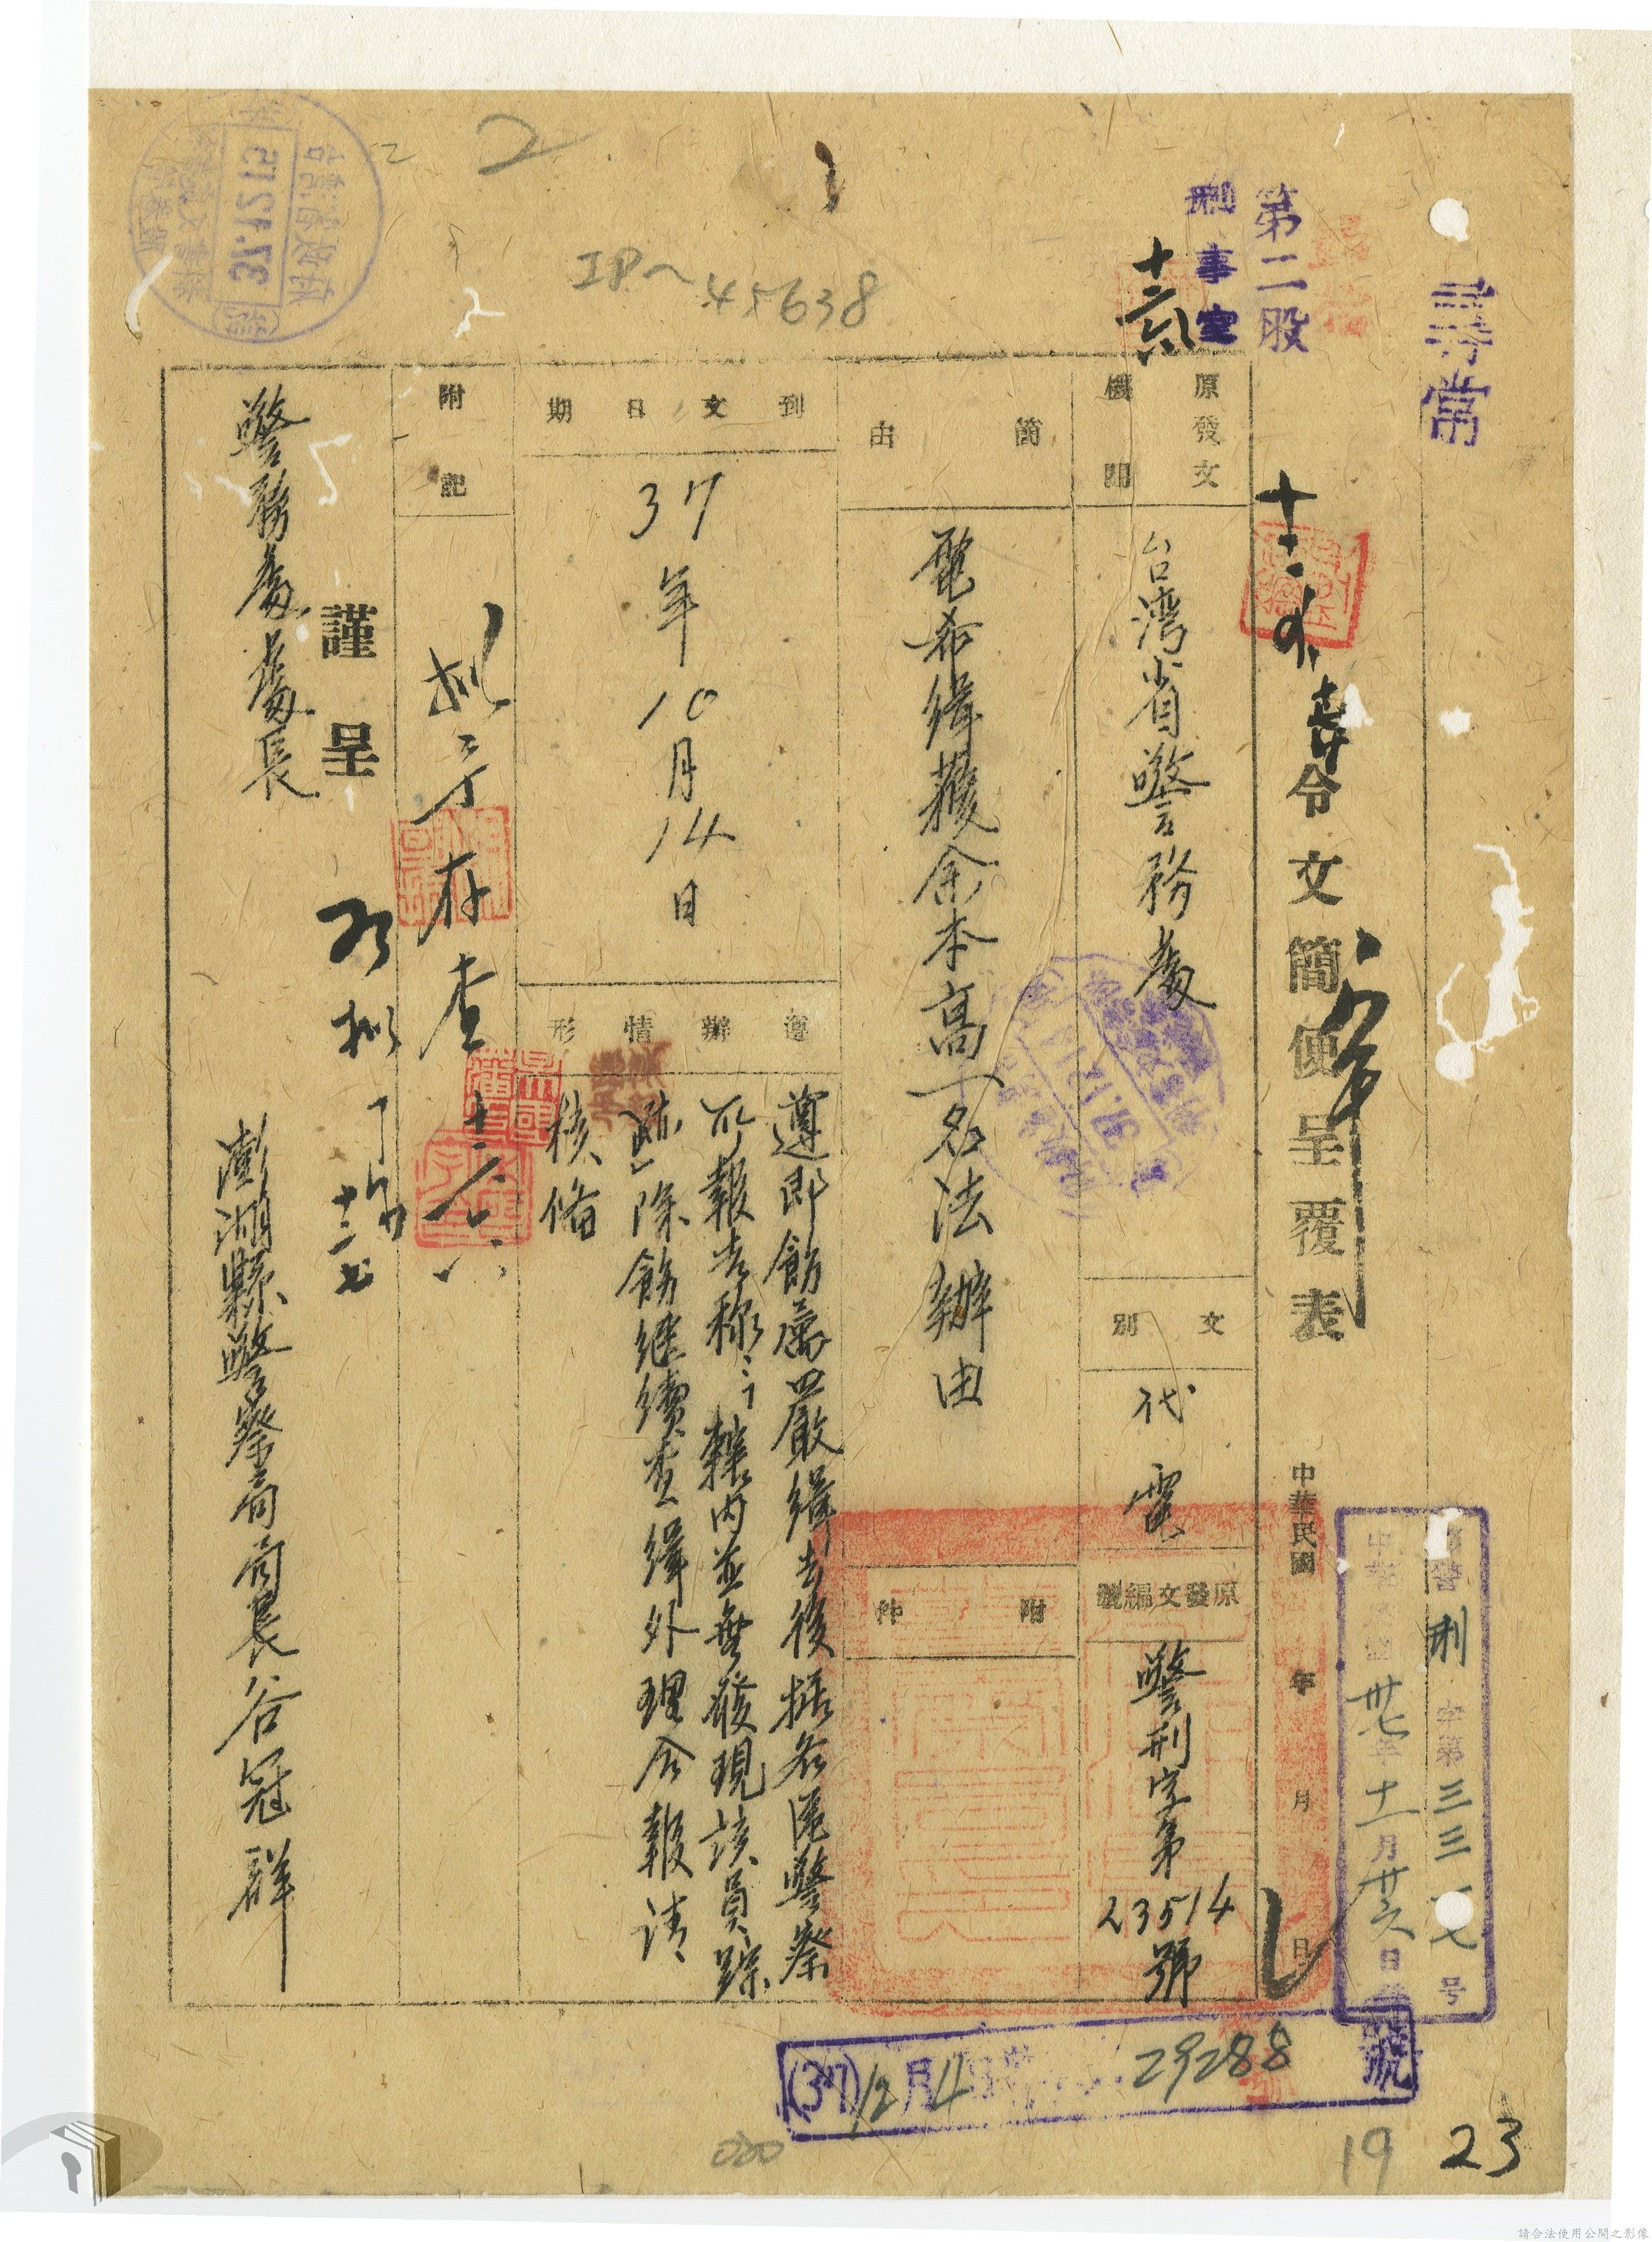 尋常
第二股
刑事室
十二、六
IP~45638
2
37.12.15
令文簡便呈覆表
中華民國 年 月 日
澎警刑字第三三一七号
中華民國卅七年十一月廿六日
原發文機關
台湾省警務處
文別
代電
原發文編號
警刑字第23514號
簡由
電希緝獲余本高一名法辦由
附件
到文日期
37年10月14日
遵辦情形
遵即飭屬嚴緝去後据各區警察
所報告称:「轄内並無發現該員踪
跡」除飭继續查緝外理合報請
核俻
附記
拟予存查
十二、六
謹呈
警務處處長
如拟
十二、七
澎湖縣警察局局長谷冠群
(37)12月4日
29288
號
19
23
請合法使用公開之影像